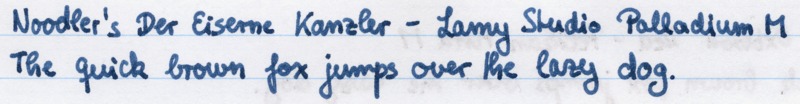 Noodler's Der Eiserne Kanzler - Lamy Studio Palladium M
The quick brown fox jumps over the lazy dog.